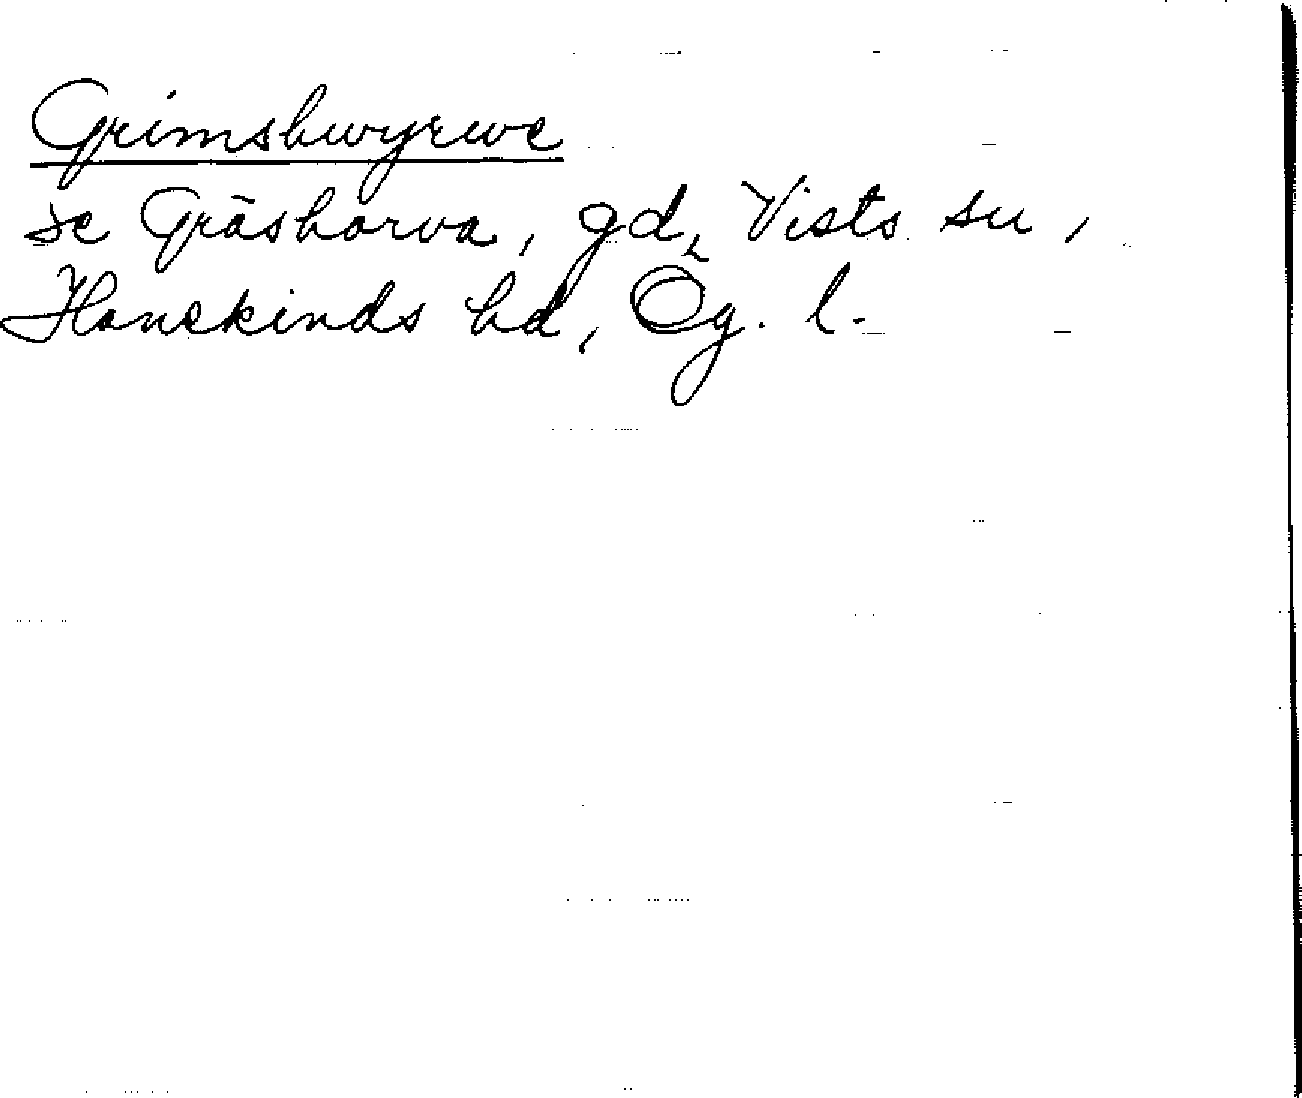 Grimshwyrwe
se Gräshorva, gd, Vists su,
Hanekinds hd, Ög. l.